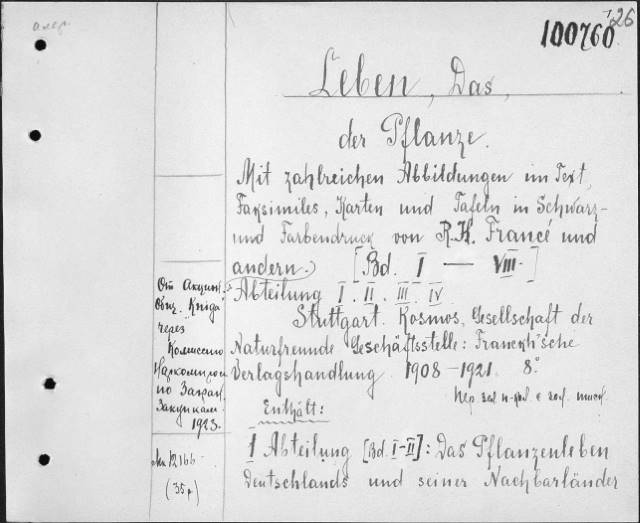 126
100760
Leben, Das,
der Pflanze.
Mit zahlreichen Abbildungen im Text,
Faksimiles, Karten und Tafeln in Schwarz-
und Farbendruck von R. H. Francé und
andern. [Bd. I — VIII.]
Abteilung I. II. III. IV.
Stuttgart. Kosmos, Gesellschaft der
Naturfreunde Geschäftsstelle: Franckh'sche
Verlagshandlung 1908-1921. 8.°
Enthält:
I Abteilung [Bd. I-II]: Das Pflanzenleben
Deutschlands und seiner Nachbarländer
От Акцион.
Общ. "Книга"
через
Комиссию
Наркомпроса
по Заган.
Закупкам.
1923.
12166
(35 р.)